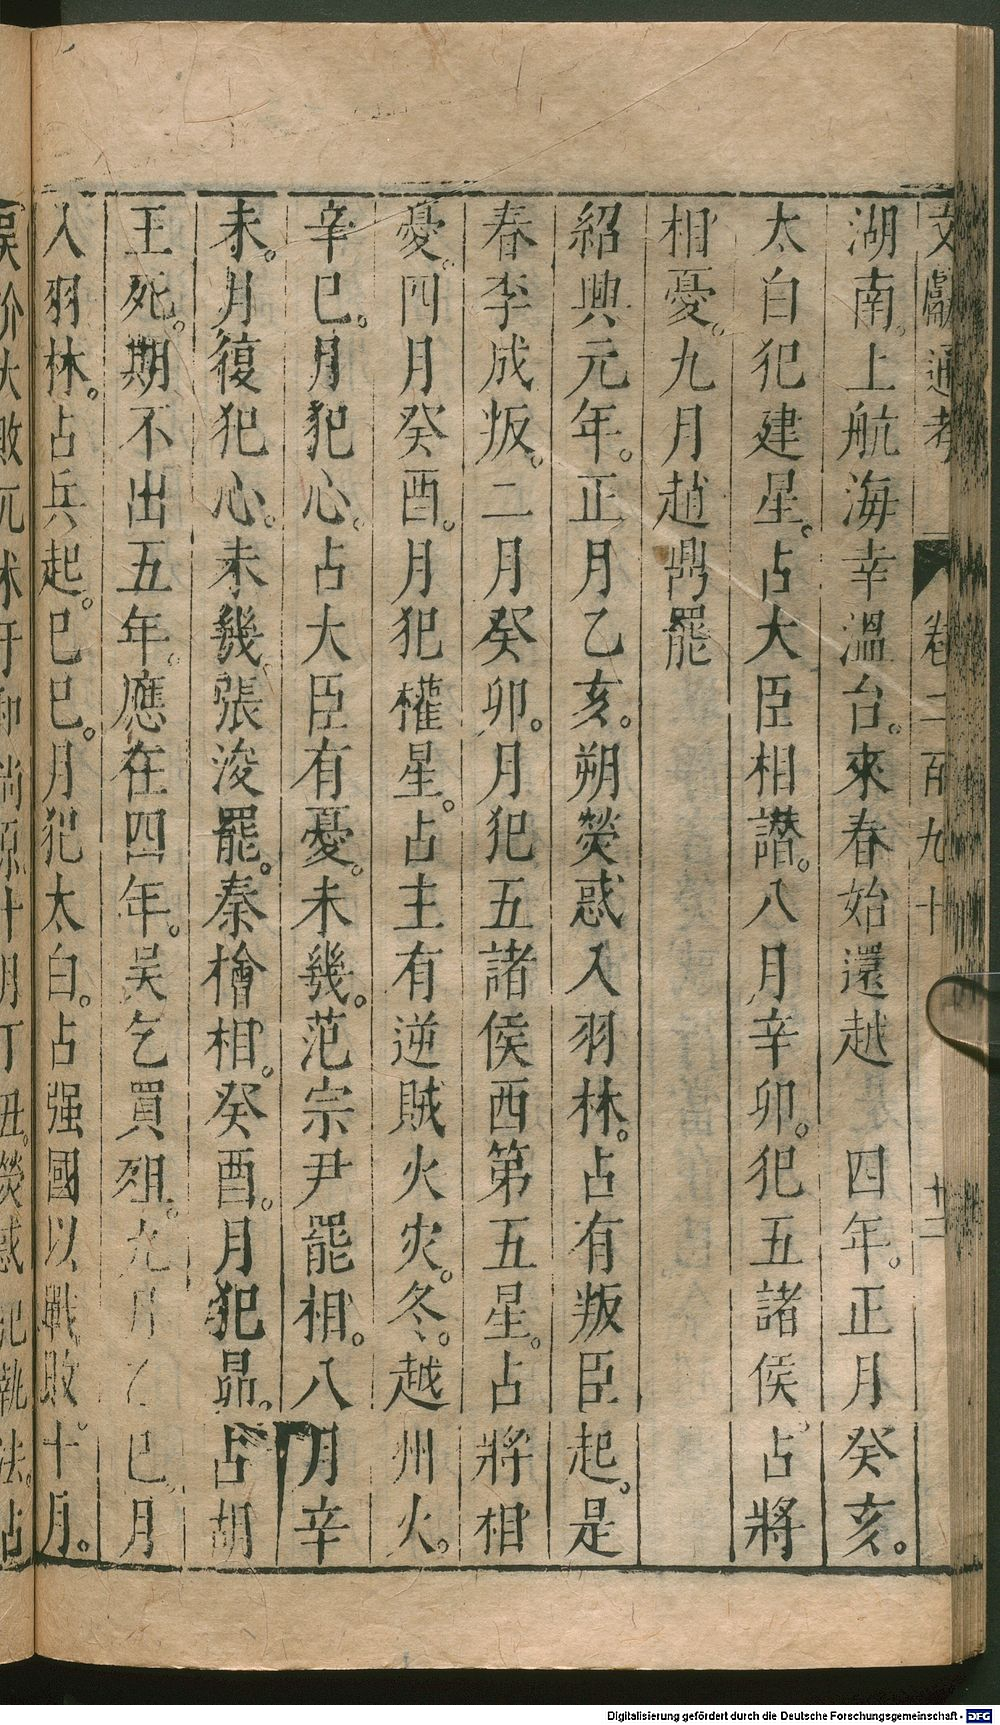 文獻通考 卷二百九十 十二
湖南。上航海幸溫台。來春始還越 四年。正月癸亥。
太白犯建星。占大臣相譖。八月辛卯。犯五諸侯。占將
相憂。九月趙鼎罷
紹興元年。正月乙亥。朔熒惑入羽林。占有叛臣起。是
春李成叛。二月癸卯。月犯五諸侯西第五星。占將相
憂。四月癸酉。月犯權星。占主有逆賊火灾。冬。越州火。
辛巳。月犯心。占大臣有憂。未幾。范宗尹罷相。八月辛
未。月復犯心。未幾。張浚罷。秦檜相。癸酉。月犯昴。占胡
王死。期不出五年。應在四年。吳乞買殂。九月乙巳。月
入羽林。占兵起。巳巳。月犯太白。占强國以戰敗。十月。
吳玠大敗兀朮于和尚原十月丁丑。熒惑犯執法。占
Digitalisierung gefördert durch die Deutsche Forschungsgemeinschaft - DFG